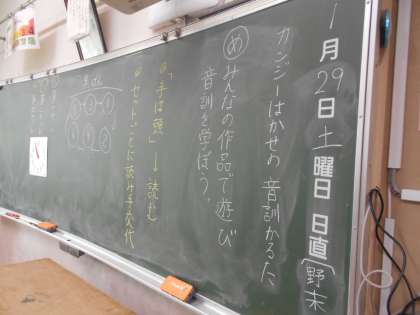 1月29日土曜日 日直(野末
カンジーはかせの音訓かるた
め みんなの作品で遊び
音訓を学ぼう。
◎「手は頭」→読む
◎セットごとに読み手交代